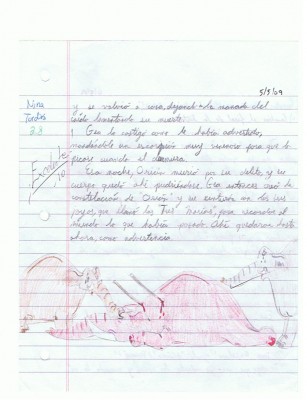 5/5/09
Nina
Tordos
3.8
y se volvió a casa, dejando a la manada del
caído lamentando su muerte.
Gea lo castigó como le había advertido,
mandándole un escorpión muy venenoso para que lo
picara cuando él durmiera.
Esa noche, Orión murió por su delito, y su
cuerpo quedó allí pudriéndose. Gea entonces creó la
constelación de "Orión" y se
que llamó las Tres Marías, para recordar al
mundo lo que había pasado. Allí quedaron hasta
ahora, como advertencia.
Excelente
10